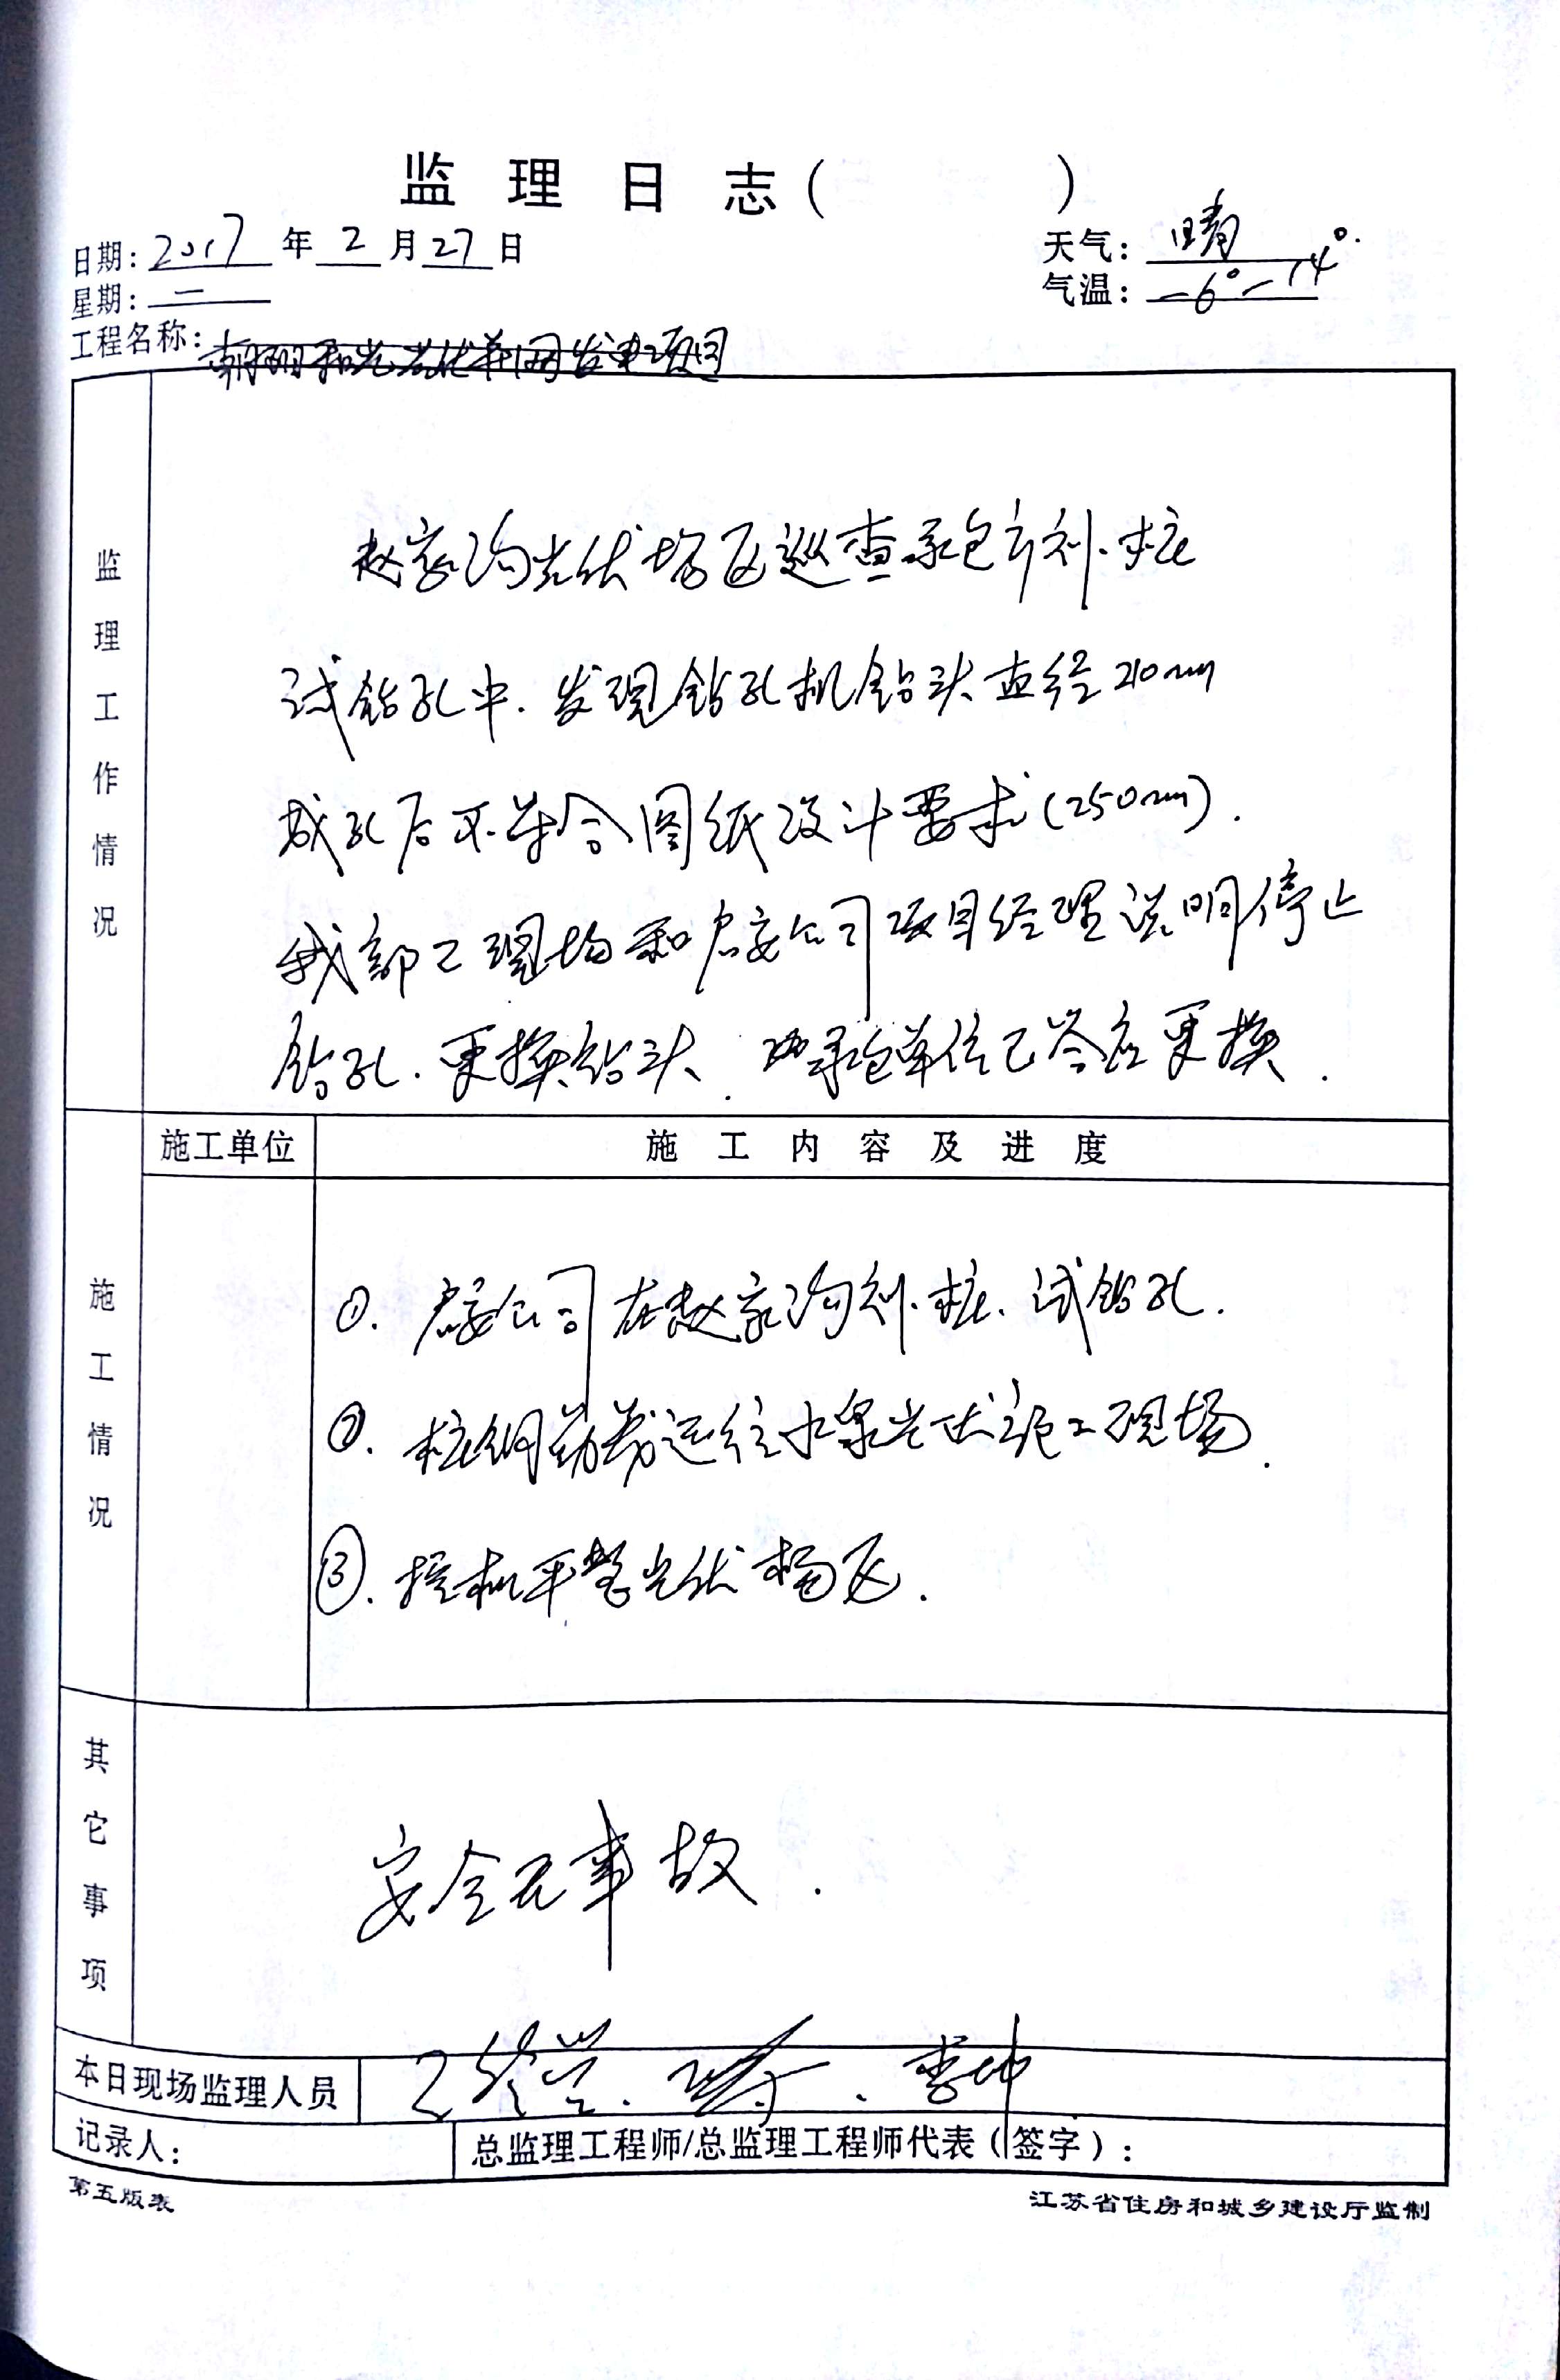 监理日志（ ）
日期：2017年2月27日 天气：晴
星期：二 气温：-6°-14°
工程名称：朝阳和光光伏并网发电项目
监理工作情况
赵家沟光伏场区巡查承包方补桩
试钻孔中.发现钻孔机钻头直径210mm
成孔后不符合图纸设计要求(250mm).
我部已现场和启安公司项目经理说明停止
钻孔.更换钻头.承包单位已答应更换.
施工单位 施工内容及进度
施工情况
①.启安公司在赵家沟补桩.试钻孔.
②.桩钢筋笼运往水泉光伏施工现场.
③.挖机平整光伏场区.
其它事项
安全无事故.
本日现场监理人员 李坤
记录人： 总监理工程师/总监理工程师代表（签字）：
第五版表 江苏省住房和城乡建设厅监制